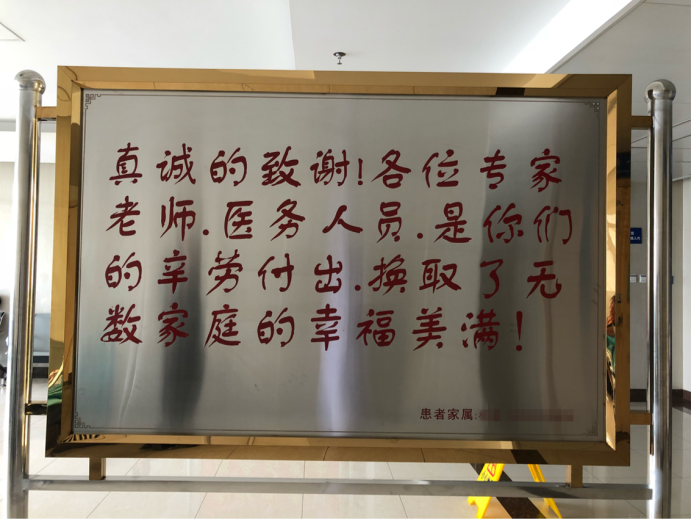 真诚的致谢!各位专家
老师.医务人员.是你们
的辛劳付出.换取了无
数家庭的幸福美满!
患者家属: